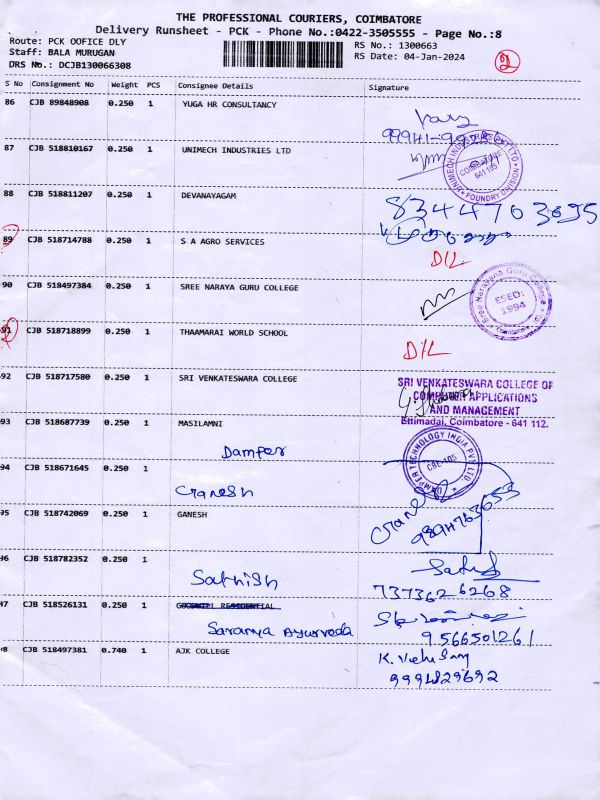 THE PROFESSIONAL COURIERS, COIMBATORE
Delivery Runsheet - PCK - Phone No.:0422-3505555 - Page No.:8
Route: PCK OOFICE DLY
Staff: BALA MURUGAN
DRS No.: DCJB130066308
RS No.: 1300663
RS Date: 04-Jan-2024
2
S No Consignment No Weight PCS Consignee Details Signature
86 CJB 89848908 0.250 1 YUGA HR CONSULTANCY
87 CJB 518810167 0.250 1 UNIMECH INDUSTRIES LTD
COIMBATORE 641105
FOUNDRY DIVISION
88 CJB 518811207 0.250 1 DEVANAYAGAM
8344703695
89 CJB 518714788 0.250 1 S A AGRO SERVICES
D/L
90 CJB 518497384 0.250 1 SREE NARAYA GURU COLLEGE
Sree Narayana Guru College
ESED:
1994
Coimbatore
91 CJB 518718899 0.250 1 THAAMARAI WORLD SCHOOL
D/L
92 CJB 518717580 0.250 1 SRI VENKATESWARA COLLEGE
SRI VENKATESWARA COLLEGE OF
COMPUTER APPLICATIONS
AND MANAGEMENT
Ettimadai, Coimbatore - 641 112.
93 CJB 518687739 0.250 1 MASILAMNI
Damper
DAMPER TECHNOLOGY INDIA PVT LTD.
CBE-105
94 CJB 518671645 0.250 1
Ganesh
95 CJB 518742069 0.250 1 GANESH
Ganesh
9894763655
96 CJB 518782352 0.250 1
Sathish
7373626268
97 CJB 518526131 0.250 1 GOODWILL RESIDENTIAL
Saranya Ayurveda
9566501261
98 CJB 518497381 0.740 1 AJK COLLEGE
9994829692